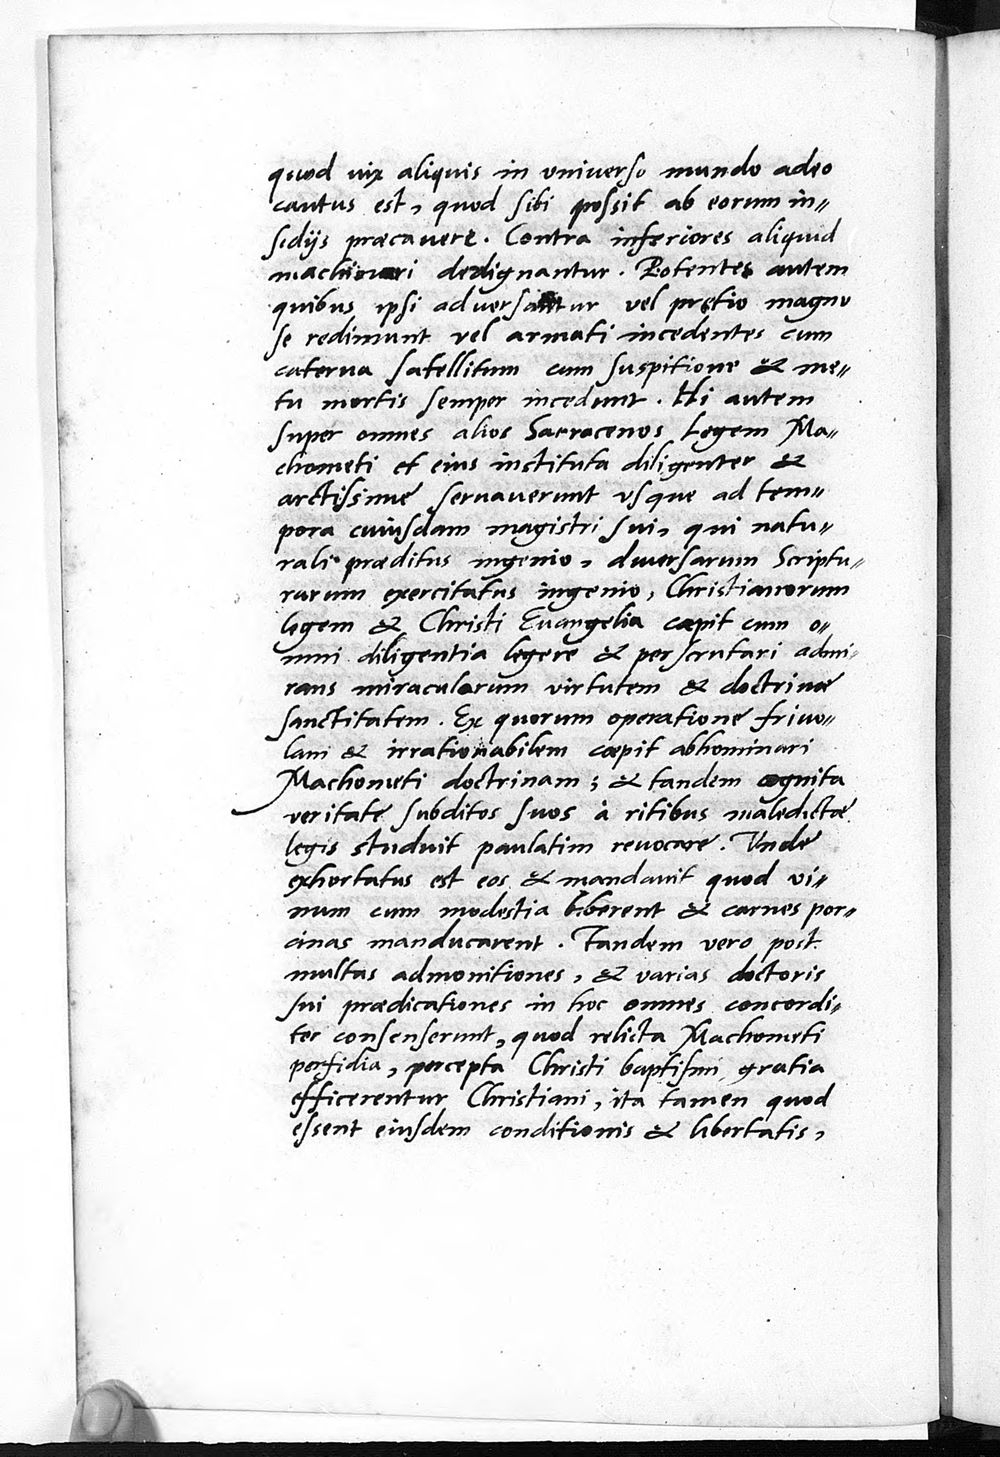 quod uix aliquis in vniuerso mundo adeo
cautus est, quod sibi possit ab eorum in„
sidijs præcauere. Contra inferiores aliquid
machinari dedignantur. Potentes autem
quibus ipsi aduersantur vel pretio magno
se redimunt vel armati incedentes cum
caterua satellitum cum suspitione & me„
tu mortis semper incedunt. Hi autem
super omnes alios Sarracenos legem Ma„
chometi et eius instituta diligenter &
arctissime seruauerunt vsque ad tem„
pora cuiusdam magistri sui, qui natu„
rali præditus ingenio, diuersarum Scriptu„
rarum exercitatus ingenio, Christianorum
legem & Christi Euangelia cœpit cum o„
mni diligentia legere & perscrutari admi„
rans miraculorum virtutem & doctrinæ
sanctitatem. Ex quorum operatione friuo„
lam & irrationabilem cœpit abhominari
Machometi doctrinam; & tandem cognita
veritate subditos suos à ritibus maledictæ
legis studuit paulatim reuocare. Vnde
exhortatus est eos & mandauit quod vi„
num cum modestia biberent & carnes por„
cinas manducarent. Tandem vero post
multas admonitiones, & varias doctoris
sui prædicationes in hoc omnes concordi„
ter consenserunt, quod relicta Machometi
perfidia, percepta Christi baptismi gratia
efficerentur Christiani, ita tamen quod
essent eiusdem conditionis & libertatis,